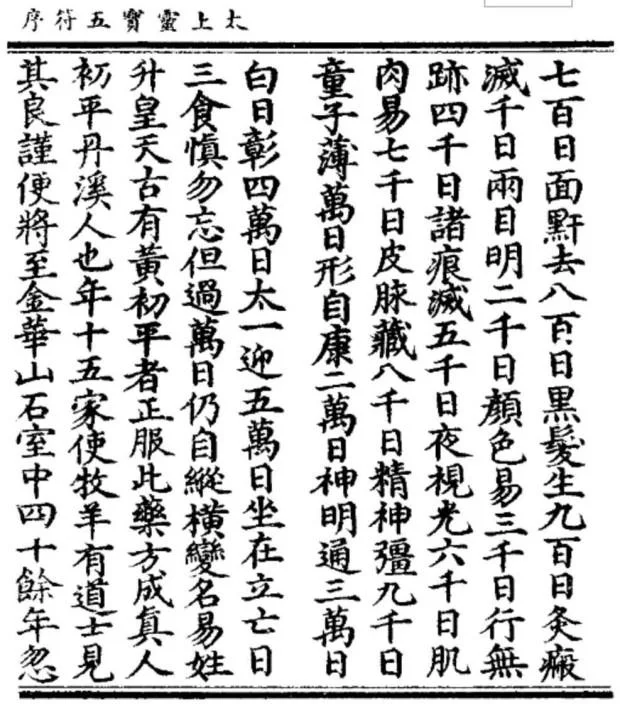 太上靈寶五符序
七百日面䵟去八百日黒髮生九百日灸瘢
滅千日兩目明二千日顔色易三千日行無
跡四千日諸痕滅五千日夜視光六千日肌
肉易七千日皮脉藏八千日精神彊九千日
童子薄萬日形自康二萬日神明通三萬日
白日彰四萬日太一迎五萬日坐在立亡日
三食慎勿忘但過萬日仍自縱橫變名易姓
升皇天古有黃初平者正服此藥方成真人
初平丹溪人也年十五家使牧羊有道士見
其良謹便將至金華山石室中四十餘年忽